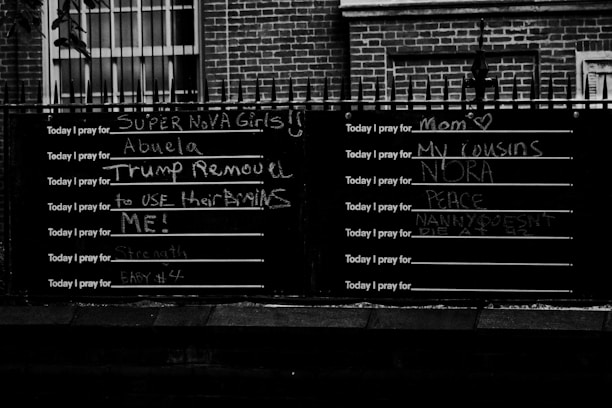 Today I pray for SUPER NOVA Girls!!
Today I pray for Abuela
Today I pray for Trump Removed
Today I pray for to USE their BRAINS
Today I pray for ME!
Today I pray for Strength
Today I pray for BABY #4
Today I pray for Mom ♡
Today I pray for My cousins
Today I pray for NORA
Today I pray for PEACE
Today I pray for NANNY DOESN'T
DIE AT 92
Today I pray for
Today I pray for